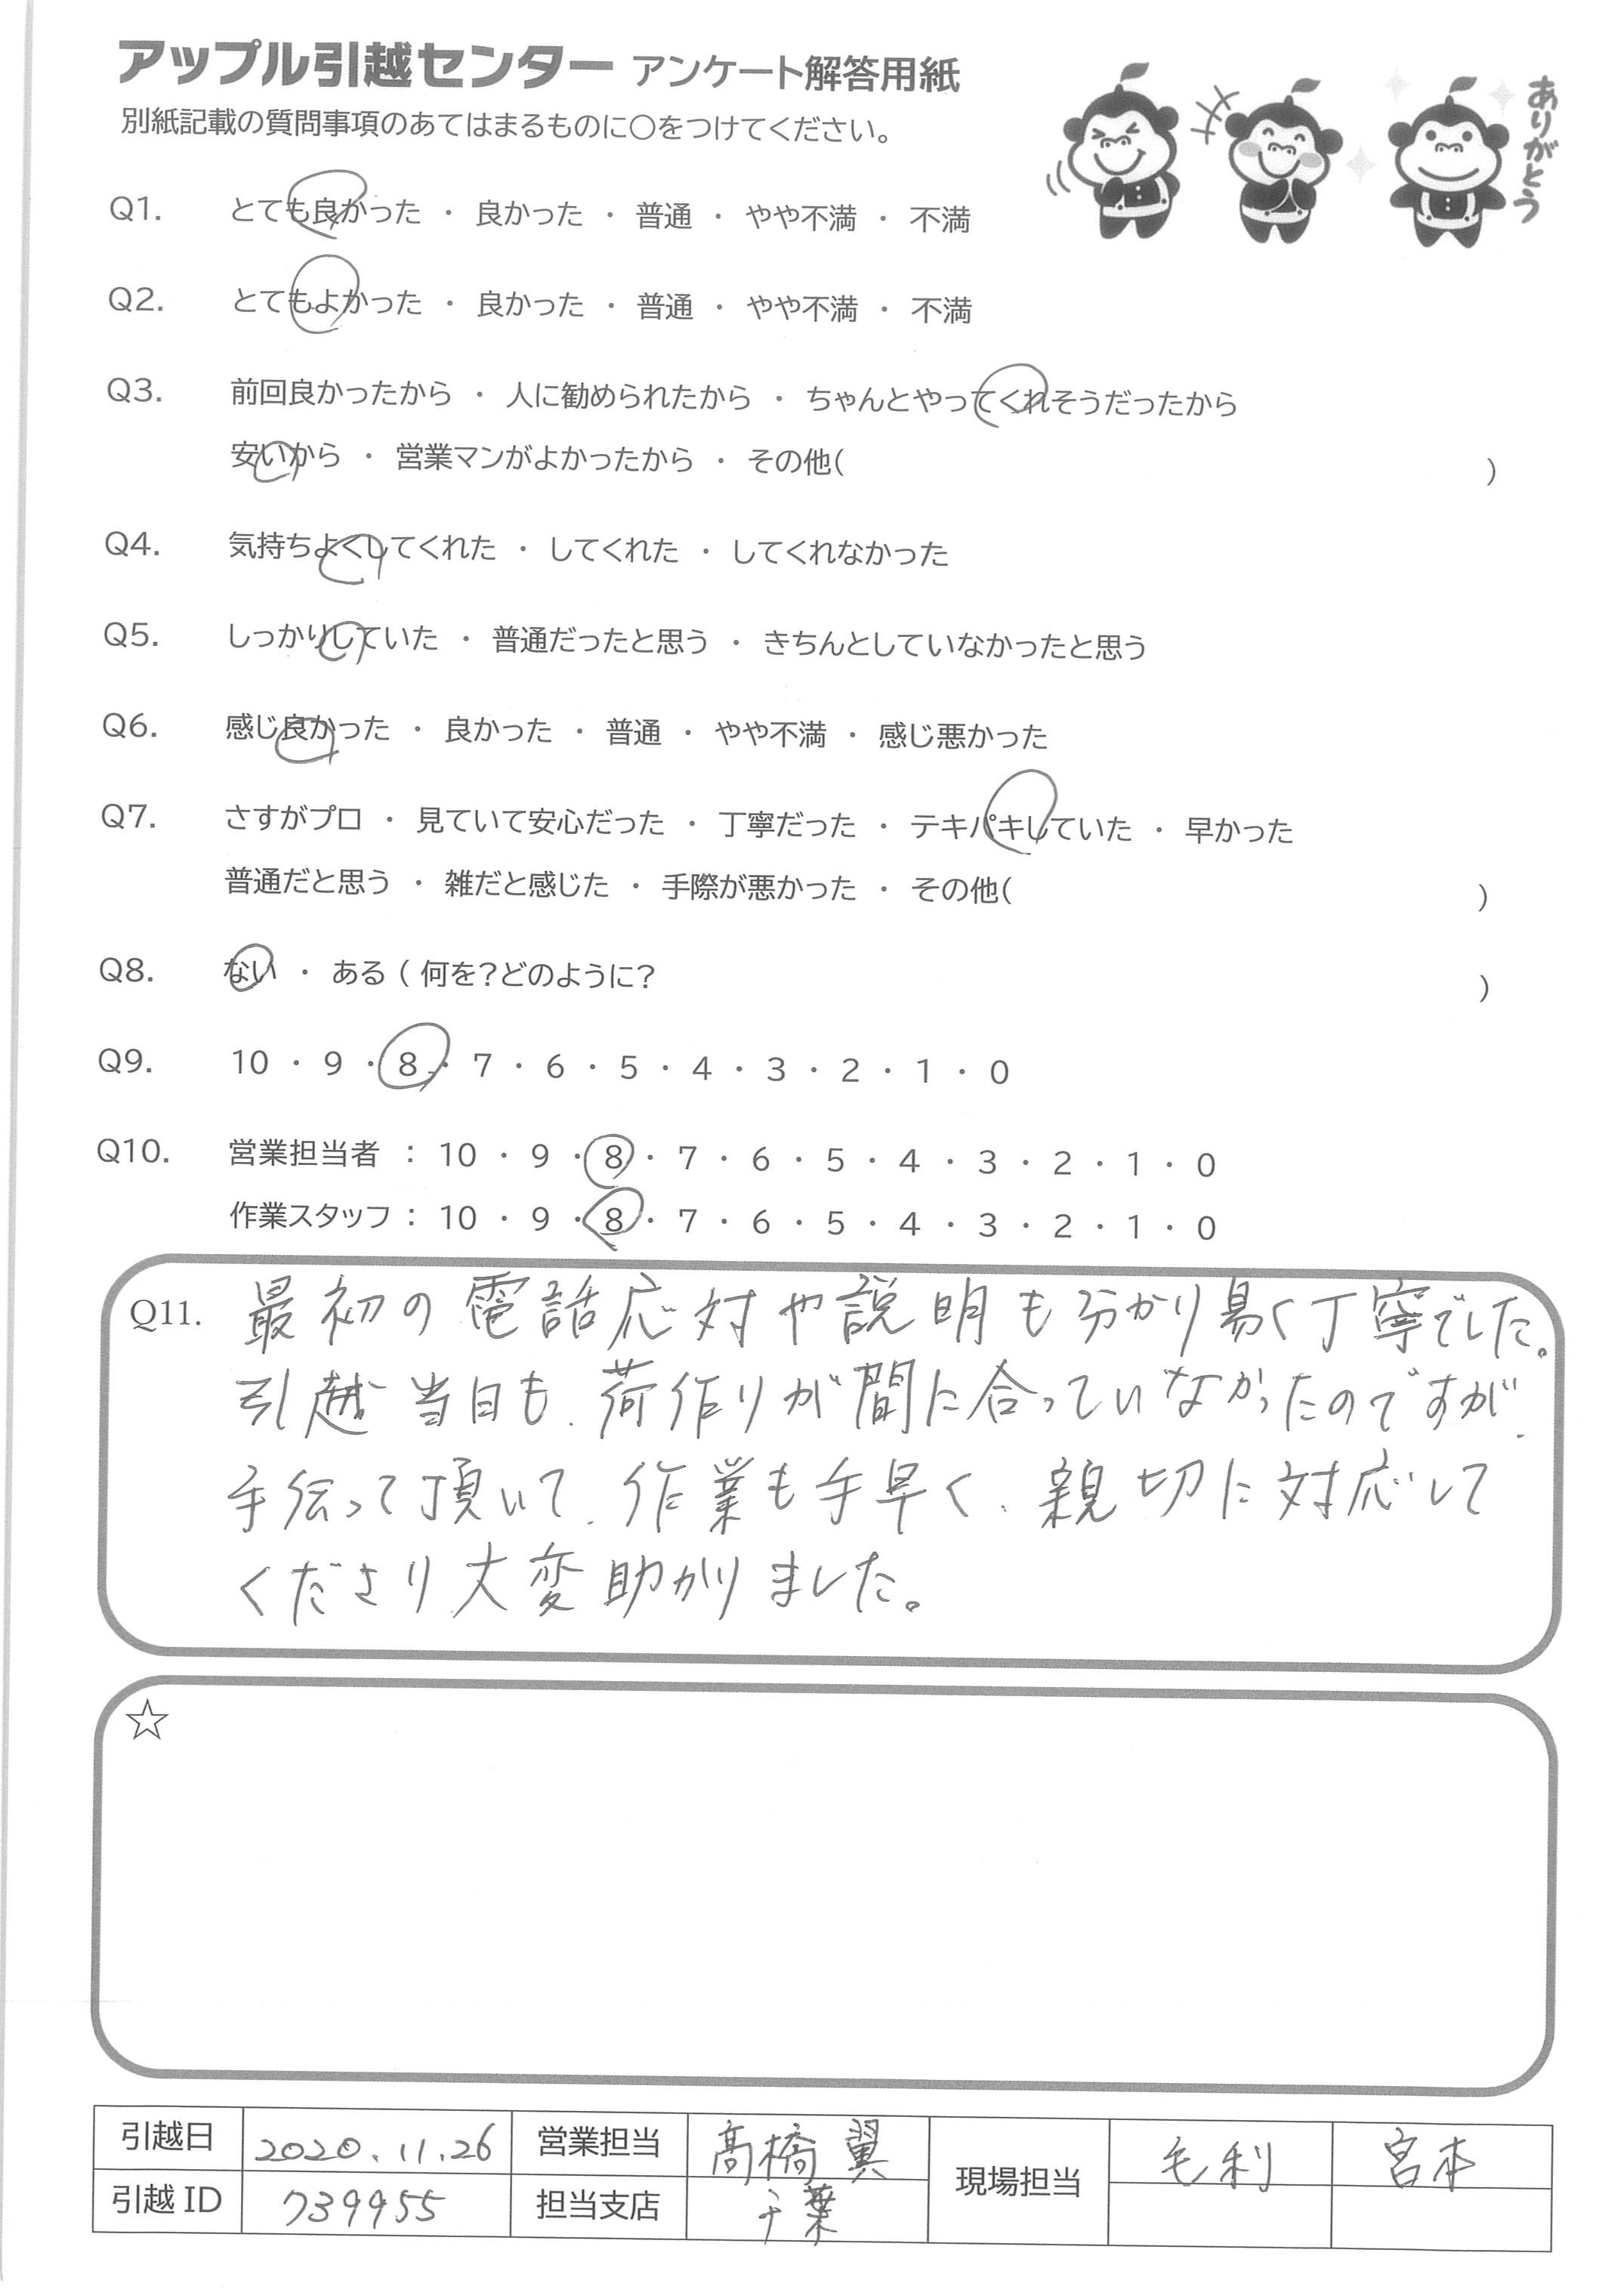 アップル引越センター アンケート解答用紙
別紙記載の質問事項のあてはまるものに○をつけてください。
ありがとう
Q1. とても良かった ・ 良かった ・ 普通 ・ やや不満 ・ 不満
Q2. とてもよかった ・ 良かった ・ 普通 ・ やや不満 ・ 不満
Q3. 前回良かったから ・ 人に勧められたから ・ ちゃんとやってくれそうだったから
安いから ・ 営業マンがよかったから ・ その他( )
Q4. 気持ちよくしてくれた ・ してくれた ・ してくれなかった
Q5. しっかりしていた ・ 普通だったと思う ・ きちんとしていなかったと思う
Q6. 感じ良かった ・ 良かった ・ 普通 ・ やや不満 ・ 感じ悪かった
Q7. さすがプロ ・ 見ていて安心だった ・ 丁寧だった ・ テキパキしていた ・ 早かった
普通だと思う ・ 雑だと感じた ・ 手際が悪かった ・ その他( )
Q8. ない ・ ある ( 何を?どのように? )
Q9. 10 ・ 9 ・ 8 ・ 7 ・ 6 ・ 5 ・ 4 ・ 3 ・ 2 ・ 1 ・ 0
Q10. 営業担当者 : 10 ・ 9 ・ 8 ・ 7 ・ 6 ・ 5 ・ 4 ・ 3 ・ 2 ・ 1 ・ 0
作業スタッフ : 10 ・ 9 ・ 8 ・ 7 ・ 6 ・ 5 ・ 4 ・ 3 ・ 2 ・ 1 ・ 0
Q11. 最初の電話応対や説明も分かり易く丁寧でした。
引越当日も、荷作りが間に合っていなかったのですが、
手伝って頂いて、作業も手早く、親切に対応して
くださり大変助かりました。
☆
引越日 2020.11.26 営業担当 髙橋翼 現場担当 毛利 宮本
引越 ID 739955 担当支店 千葉